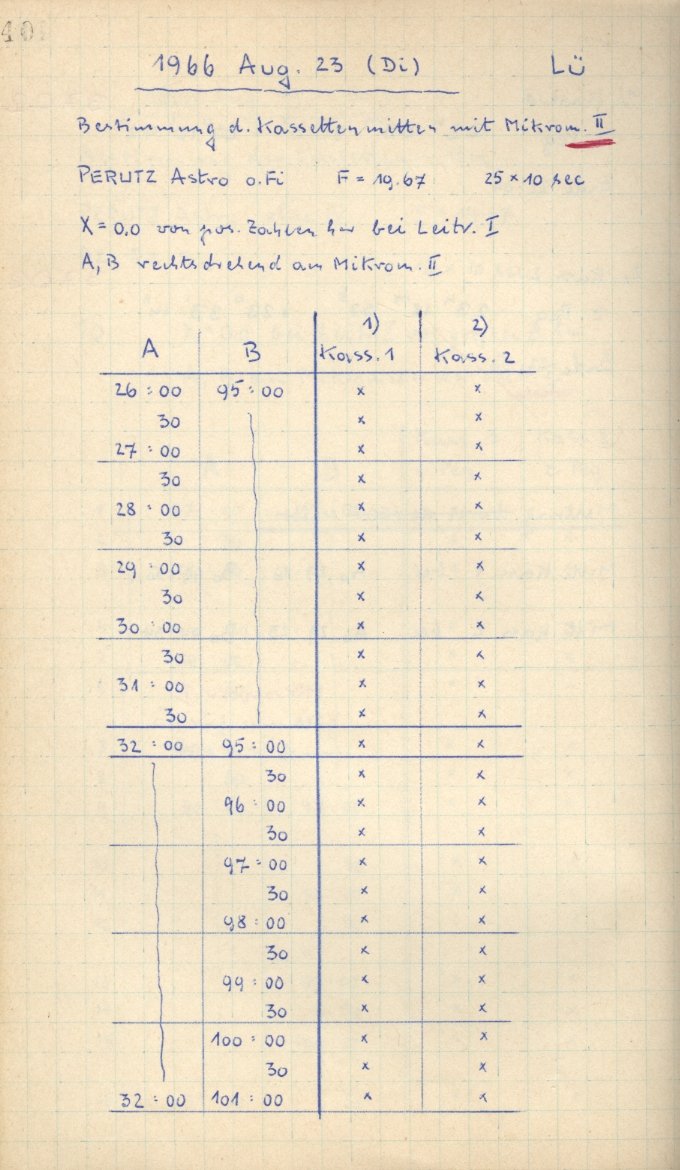 401
1966 Aug. 23 (Di) Lü
Bestimmung d. Kassettenmitten mit Mikrom. II
PERUTZ Astro o.Fi F = 19.67 25 × 10 sec
X = 0,0 von pos. Zahlen her bei Leitr. I
A, B rechtsdrehend am Mikrom. II
1) 2)
A B Kass. 1 Kass. 2
26 : 00 95 : 00 x x
30 x x
27 : 00 x x
30 x x
28 : 00 x x
30 x x
29 : 00 x x
30 x x
30 : 00 x x
30 x x
31 : 00 x x
30 x x
32 : 00 95 : 00 x x
30 x x
96 : 00 x x
30 x x
97 : 00 x x
30 x x
98 : 00 x x
30 x x
99 : 00 x x
30 x x
100 : 00 x x
30 x x
32 : 00 101 : 00 x x